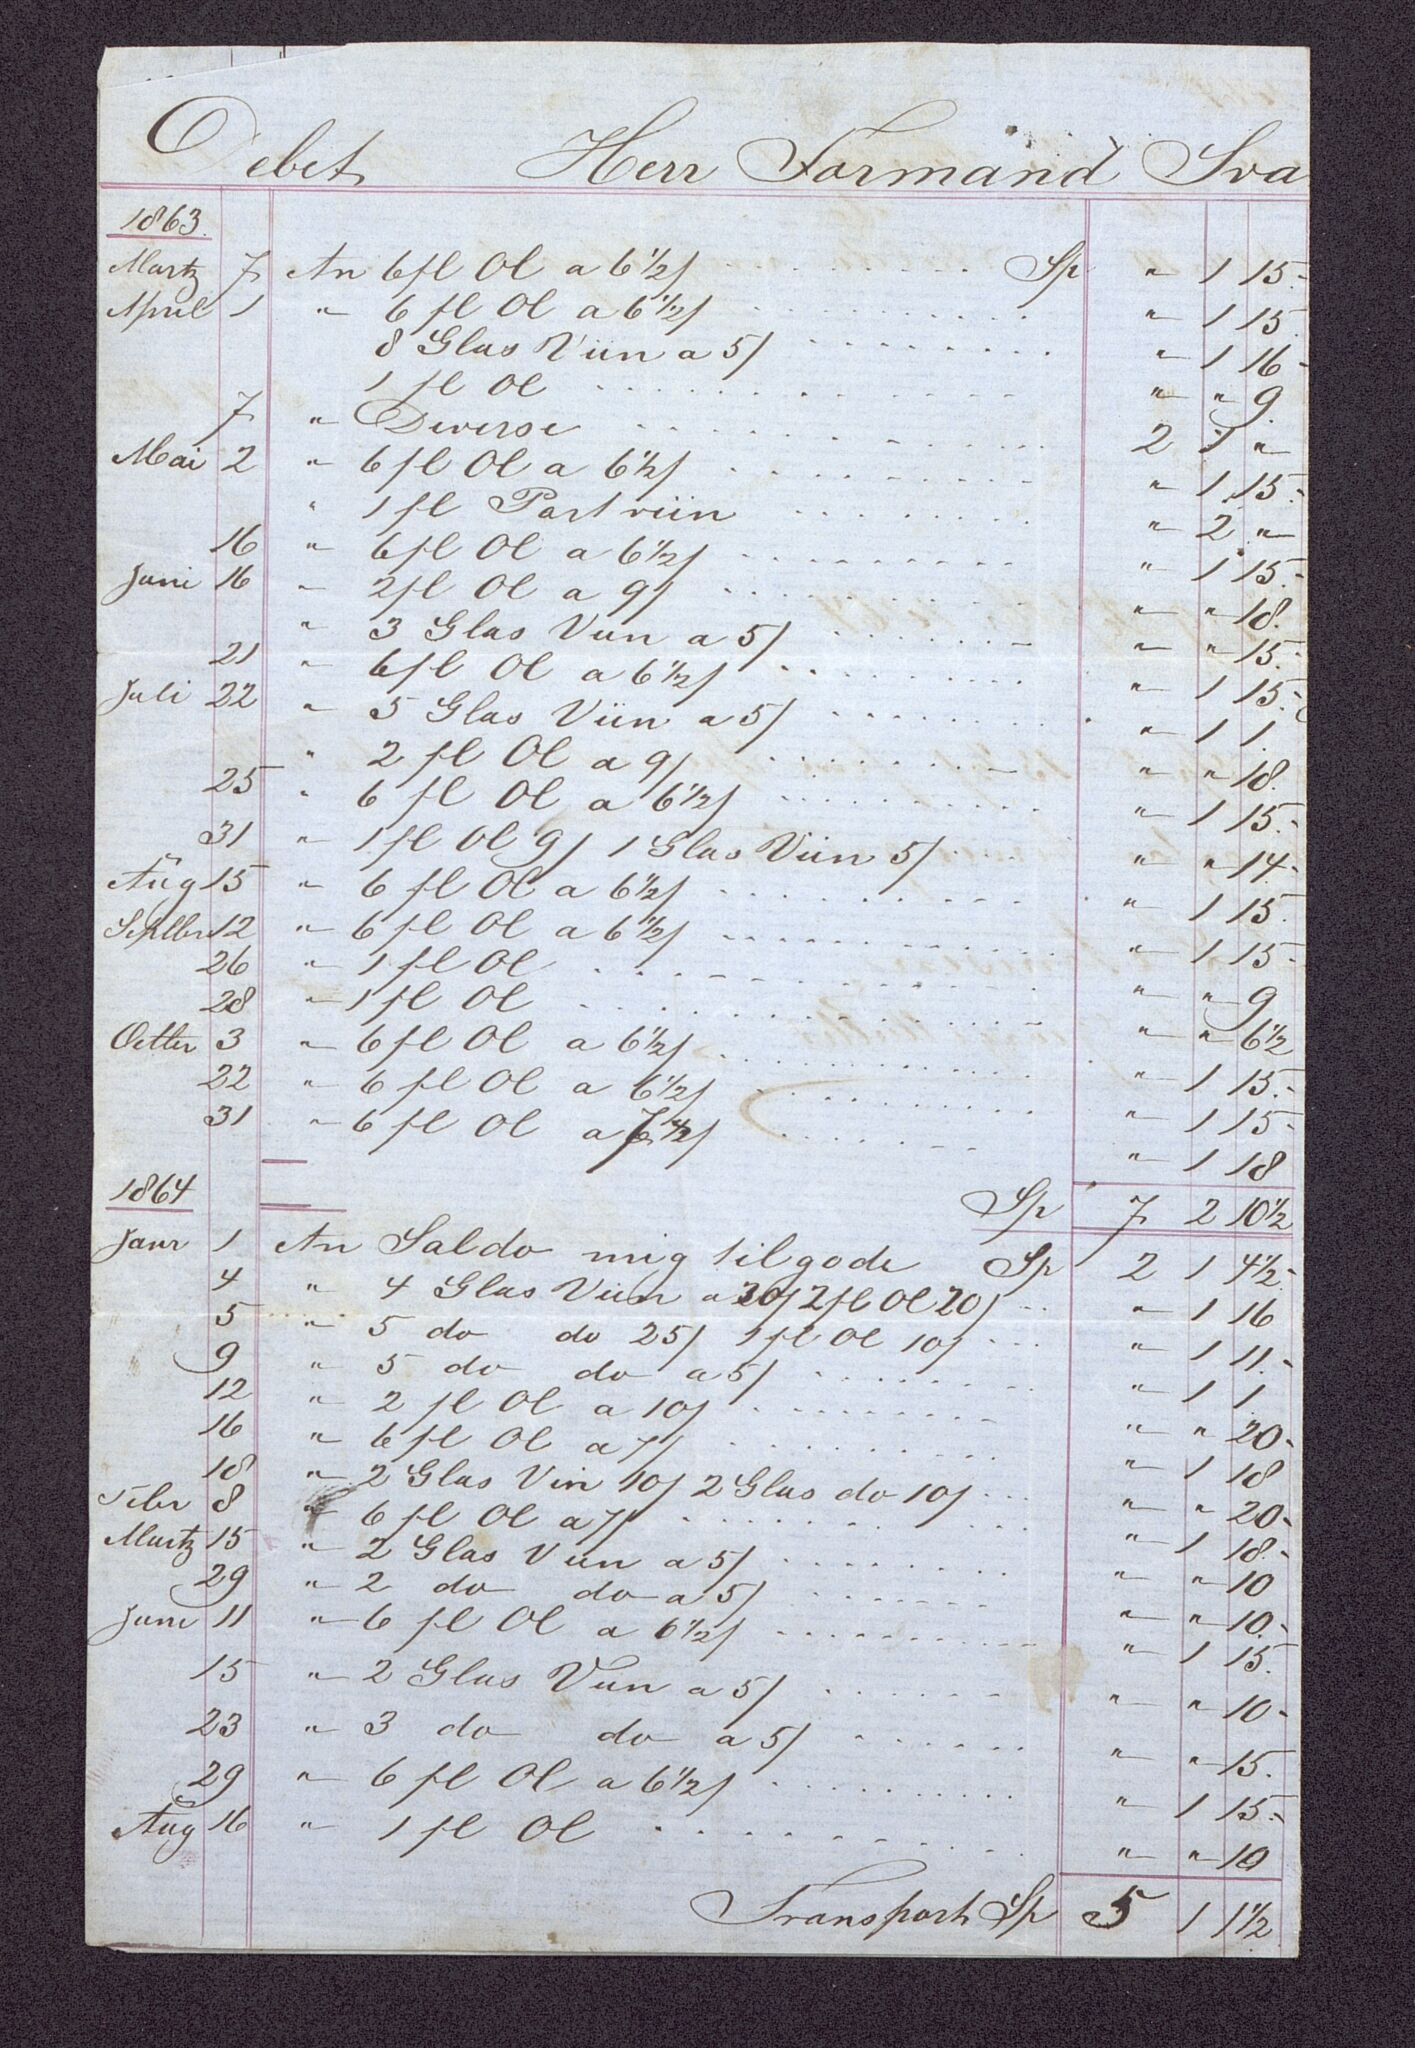 Debet Herr Formand Sva
1863.
Martz 7 An 6 fl Ol a 6 1/2 ß Sp " 1 15.
April 1 " 6 fl Ol a 6 1/2 ß " 1 15.
8 Glas Viin a 5 ß " 1 16
1 fl Ol " " 9.
7 " Diverse 2 "
Mai 2 " 6 fl Ol a 6 1/2 ß " 1 15.
" 1 fl Portviin " 2 "
16 " 6 fl Ol a 6 1/2 ß " 1 15.
Juni 16 " 2 fl Ol a 9 ß " " 18.
" 3 Glas Viin a 5 ß " " 15.
21 " 6 fl Ol a 6 1/2 ß " 1 15.
Juli 22 " 5 Glas Viin a 5 ß " 1 1.
" 2 fl Ol a 9 ß " " 18.
25 " 6 fl Ol a 6 1/2 ß " 1 15.
31 " 1 fl Ol 9 ß 1 Glas Viin 5 ß " " 14.
Aug 15 " 6 fl Ol a 6 1/2 ß " 1 15.
Septbr 12 " 6 fl Ol a 6 1/2 ß " 1 15
26 " 1 fl Ol " " 9
28 " 1 fl Ol " " 6 1/2
Octbr 3 " 6 fl Ol a 6 1/2 ß " 1 15.
22 " 6 fl Ol a 6 1/2 ß " 1 15
31 " 6 fl Ol a 7 ß " 1 18
1864 Sp 7 2 10 1/2
Janr 1 An Saldo mig tilgode Sp 2 1 4 1/2
4 " 4 Glas Viin a 20 ß 2 fl Ol 20 ß " 1 16
5 " 5 do do 25 ß 1 fl Ol 10 ß " 1 11.
9 " 5 do do a 5 ß " 1 1.
12 " 2 fl Ol a 10 ß " " 20
16 " 6 fl Ol a 7 ß " 1 18
18 " 2 Glas Vin 10 ß 2 Glas do 10 ß " " 20
Febr 8 " 6 fl Ol a 7 ß " 1 18.
Martz 15 " 2 Glas Viin a 5 ß " " 10
29 " 2 do do a 5 ß " " 10.
Juni 11 " 6 fl Ol a 6 1/2 ß " 1 15.
15 " 2 Glas Viin a 5 ß " " 10
23 " 3 do do a 5 ß " " 15.
29 " 6 fl Ol a 6 1/2 ß " 1 15.
Aug 16 " 1 fl Ol " " 10
Transport Sp 5 1 1 1/2